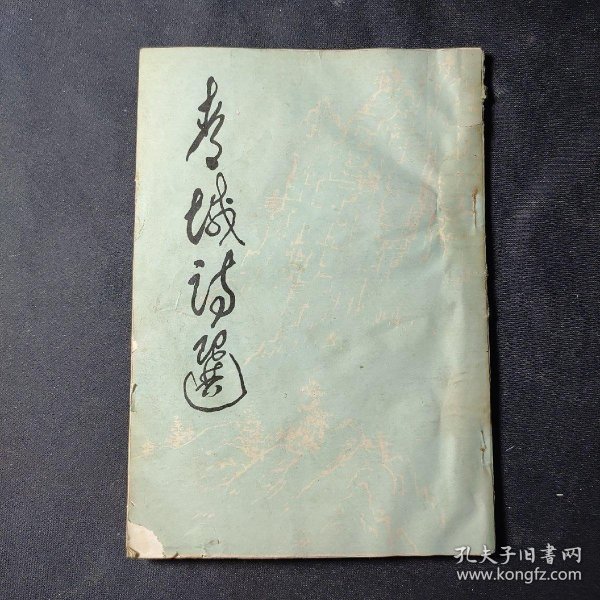 青城诗選
孔夫子旧書网
www.kongfz.com